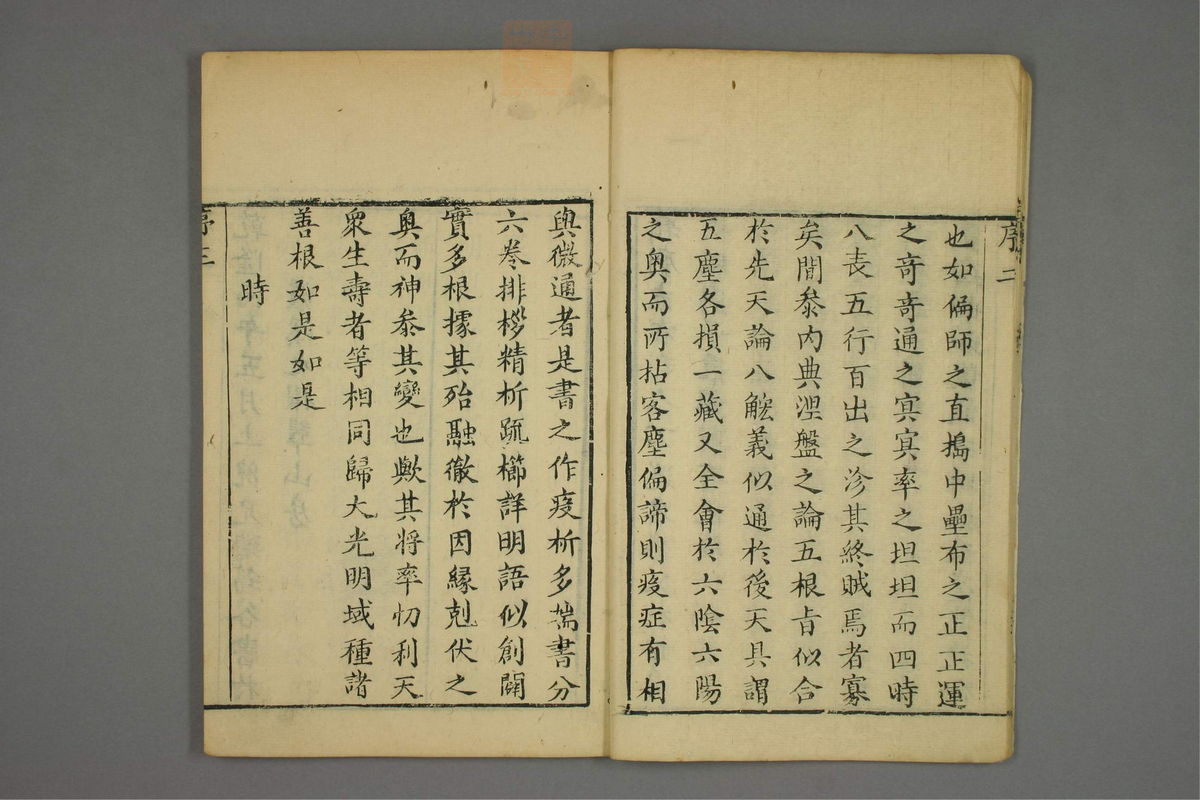 序 二
也如偏師之直搗中壘布之正正運
之竒竒通之㝠㝠率之坦坦而四時
八表五行百出之沴其終賊焉者寡
矣間叅內典湼盤之論五根㫖似合
於先天論八觥義似通於後天具謂
五塵各損一藏又全會於六陰六陽
之奥而所拈客塵偏諦則疫症有相
與微通者是書之作疫析多端書分
六卷排桚精析疏櫛詳明語似創闢
實多根據其殆融徹於因縁剋伏之
奥而神叅其變也歟其將率忉利天
衆生壽者等相同歸大光明域種諸
善根如是如是
時
序 三